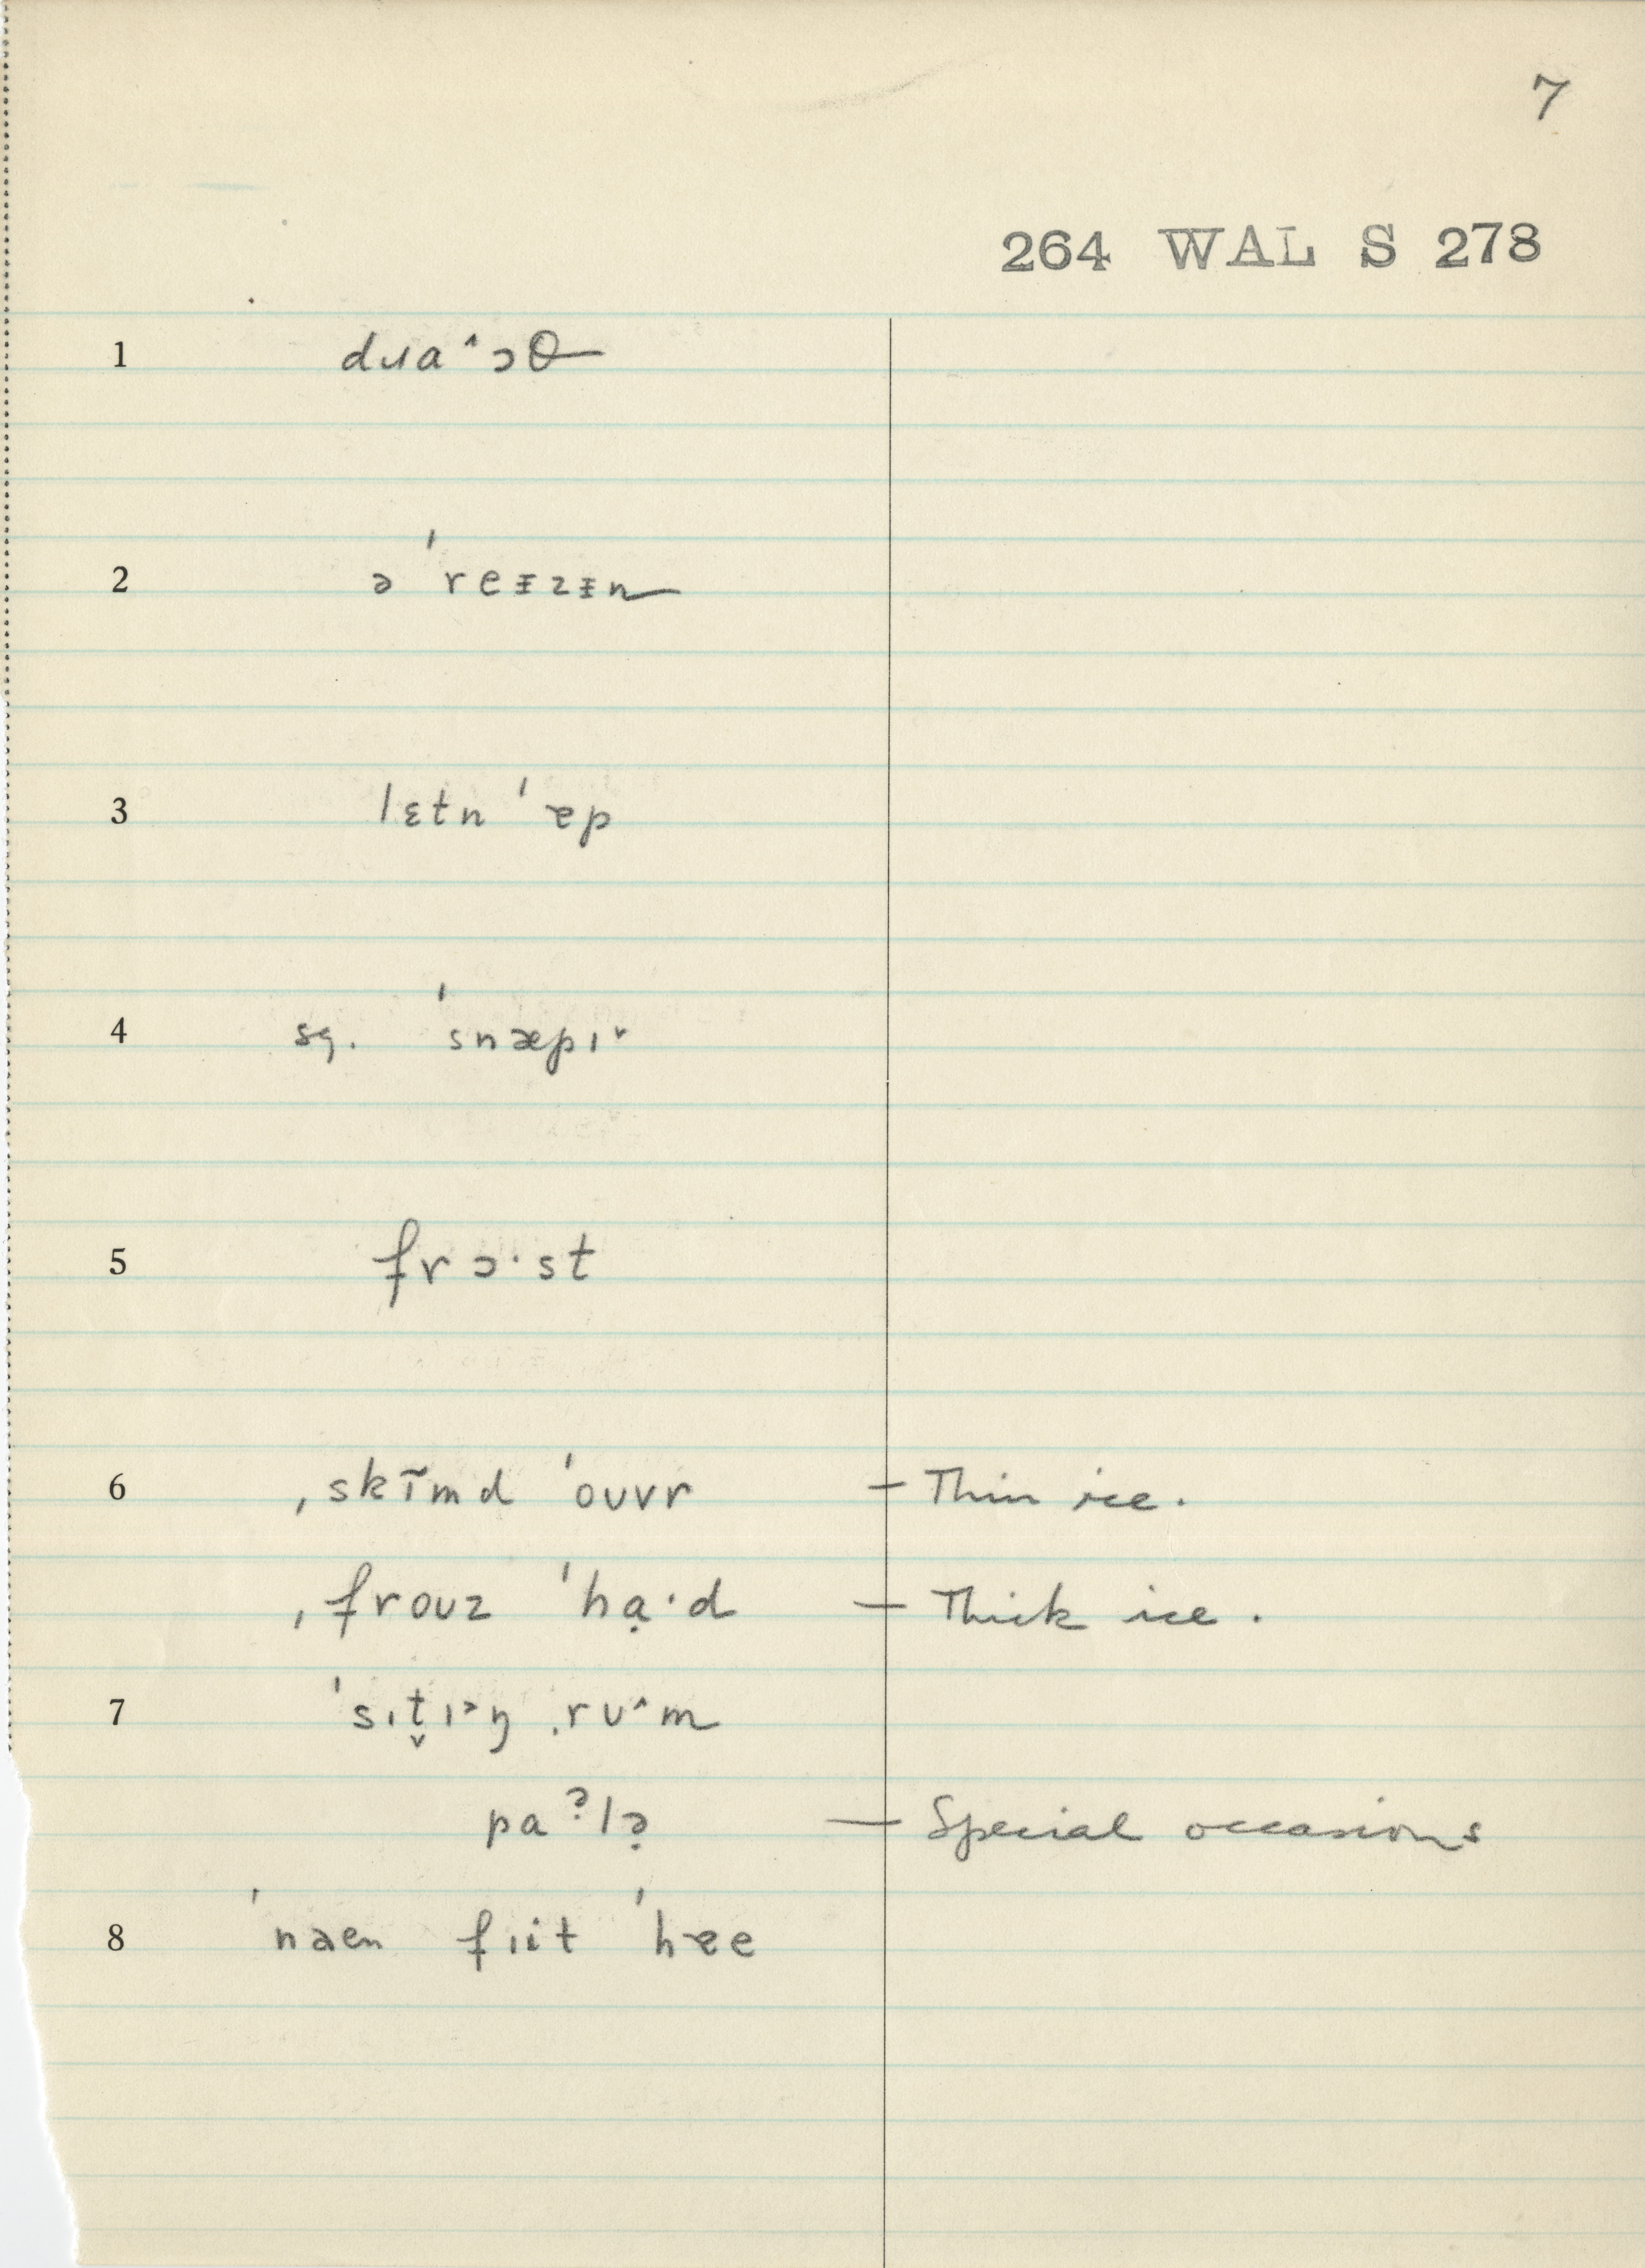 7
264 WAL S 278
1 dɹa˄ɔθ
2 ə ˈreᵻzᵻn
3 lɛtn ˈɐp
4 sg. ˈsnæpɪ˅
5 frɔ·st
6 ˌskɪ̃md ˈoʊvr — Thin ice.
ˌfroʊz ˈhɑ̣·d — Thick ice.
7 ˈsɪt̬ɪ˃ŋ ˌrʊ˄m
paˀlə̣ — Special occasions
8 ˈnaen fɪit ˈhɐe